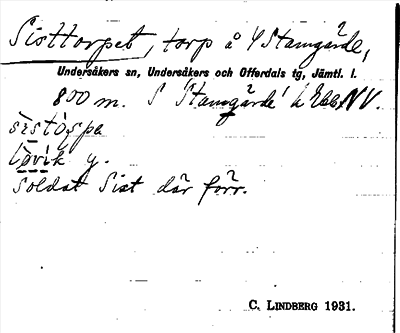 Sisttorpet, torp å Y Stamgärde,
Undersåkers sn, Undersåkers och Offerdals tg, Jämtl. l.
800 m. S Stamgärde
sistospa
Lövik y.
Soldat Sist där förr.
C. LINDBERG 1931.